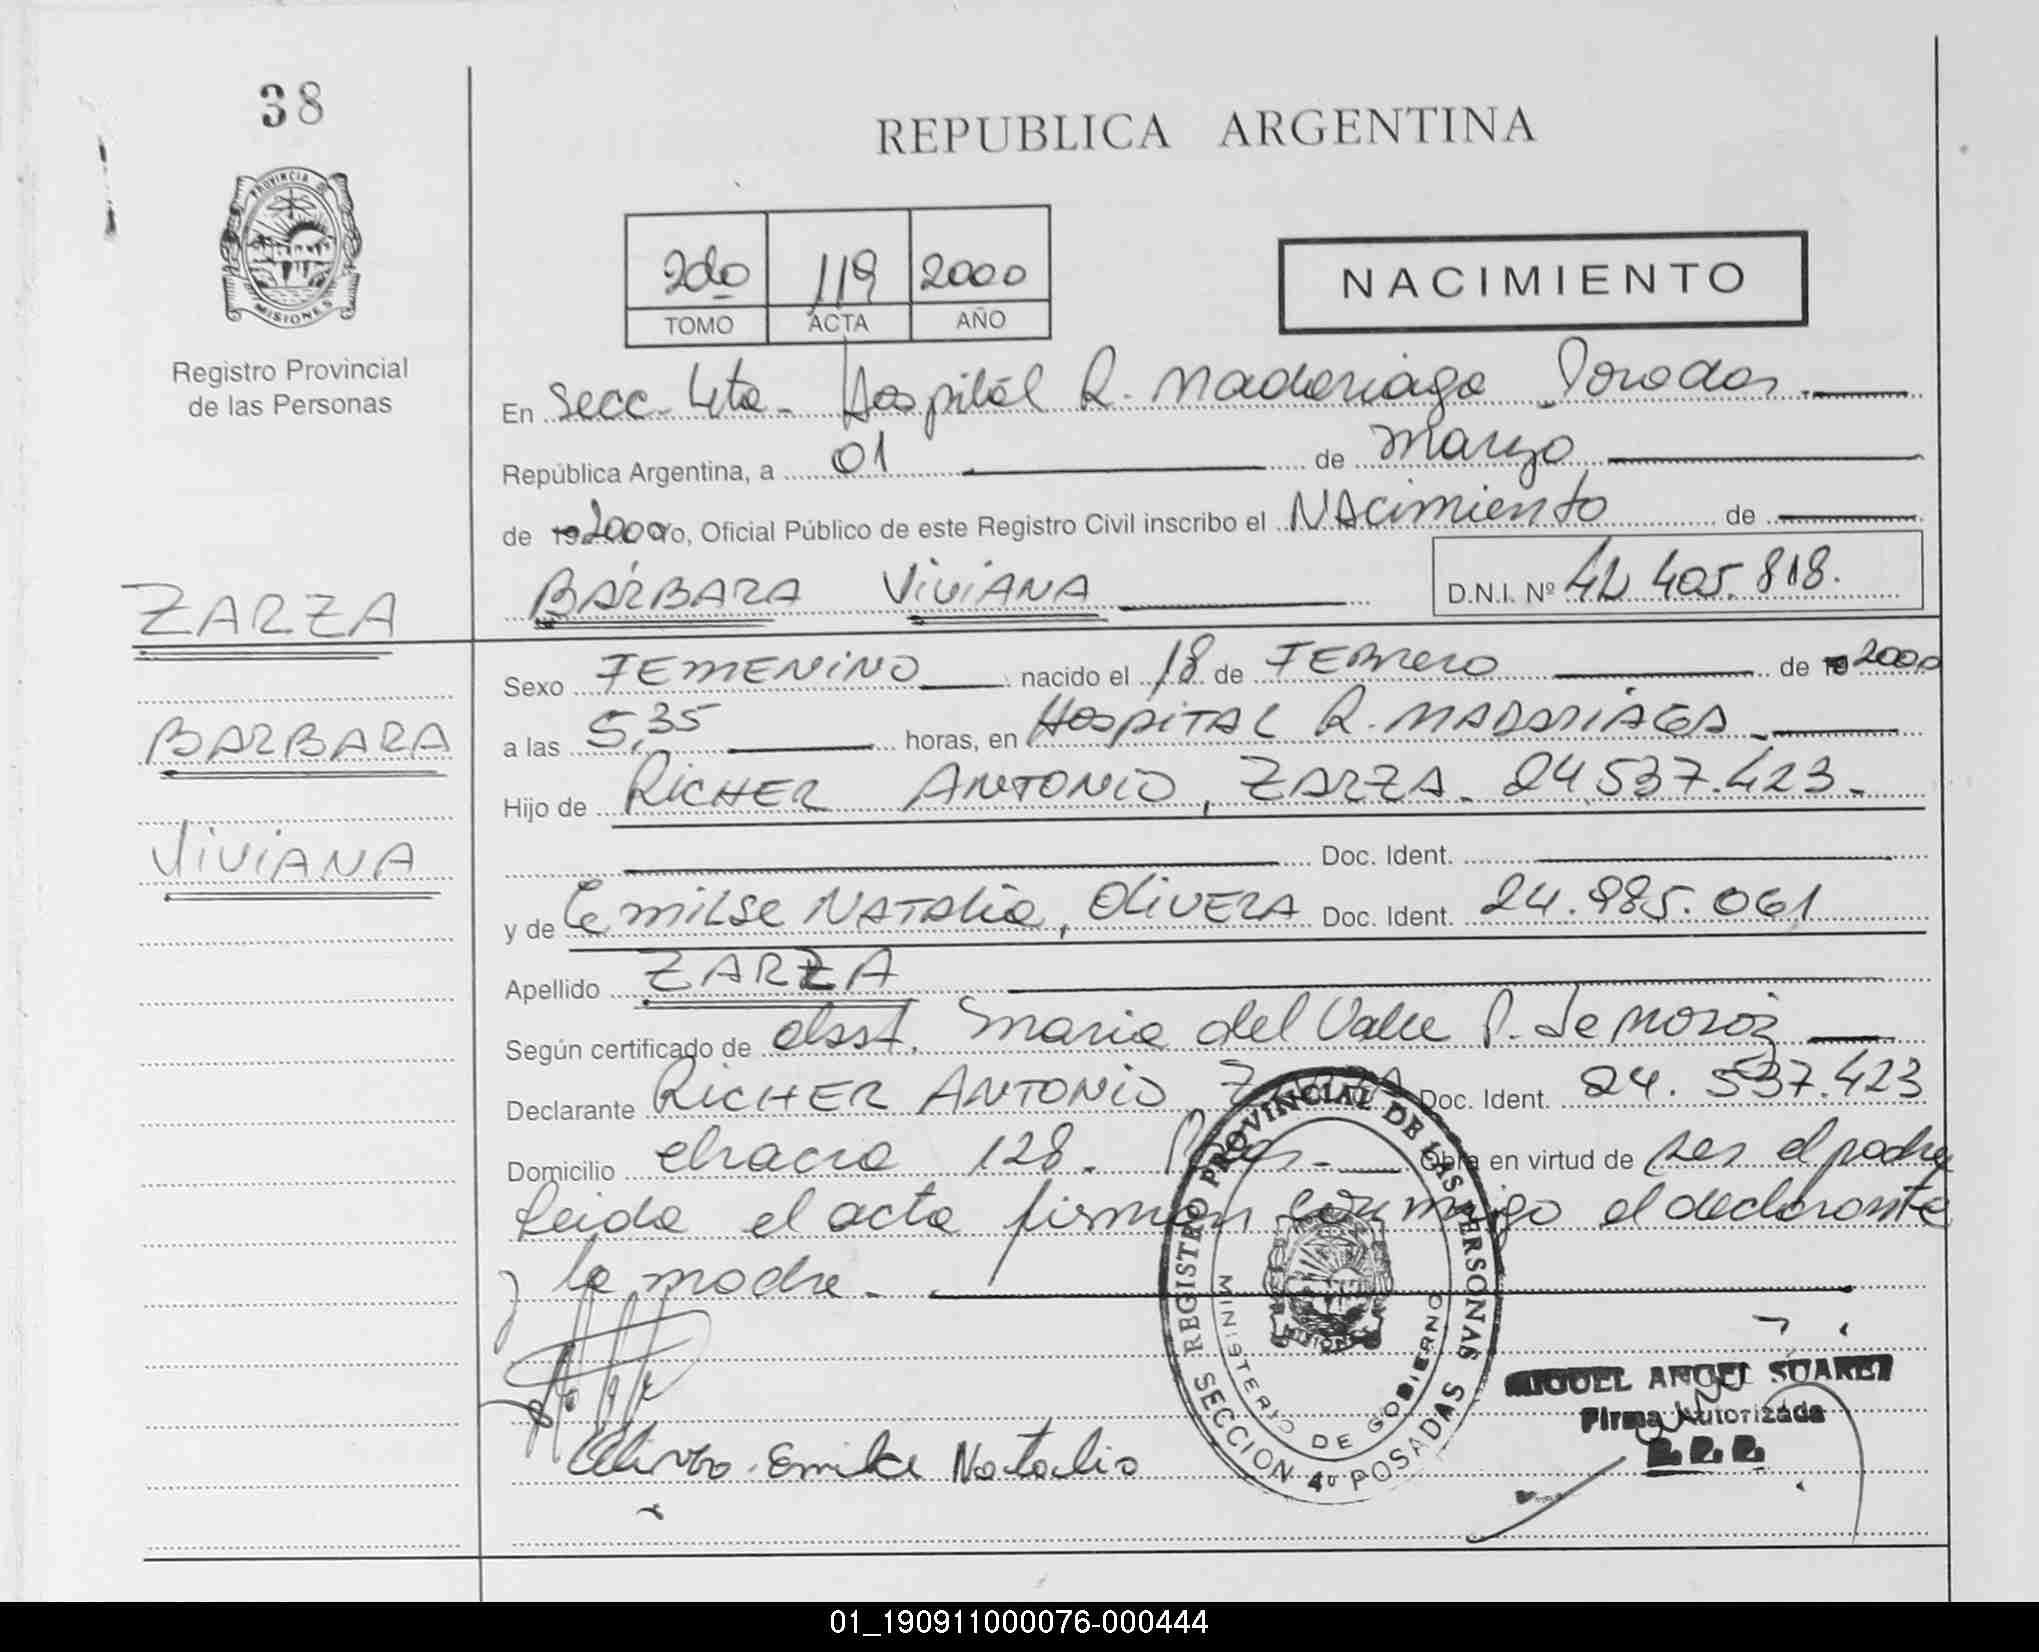 38
PROVINCIA DE
MISIONES
Registro Provincial
de las Personas
REPUBLICA ARGENTINA
2do 119 2000
TOMO ACTA AÑO
NACIMIENTO
En Secc. 4ta. Hospital R. Madariaga Posadas
República Argentina, a 01 de Marzo
de 19 2000 yo, Oficial Público de este Registro Civil inscribo el NAcimiento de
BÁRBARA ViViANA D.N.I. Nº 42.405.818.
ZARZA
BARBARA
ViViANA
Sexo FEMENiNO nacido el 18 de FEBrero de 19 2000
a las 5,35 horas, en HOSPiTAL R. MADARiAGA
Hijo de RiCHER ANTONiO, ZARZA. 24.537.423.
Doc. Ident.
y de EmiLSe NATAlia, OliVERA Doc. Ident. 24.985.061
Apellido ZARZA
Según certificado de Obst. Maria del Valle P. de Moroz
Declarante RiCHER ANTONiO ZARZA Doc. Ident. 24.537.423
Domicilio 128. Obra en virtud de ser el padre
Leida el acta firman conmigo el declarante
y la madre.
Olivera Emilse Natalia
REGISTRO PROVINCIAL DE LAS PERSONAS
MINISTERIO DE GOBIERNO
MISIONES
SECCION 4º POSADAS
MIGUEL ANGEL SUAREZ
Firma Autorizada
01_190911000076-000444